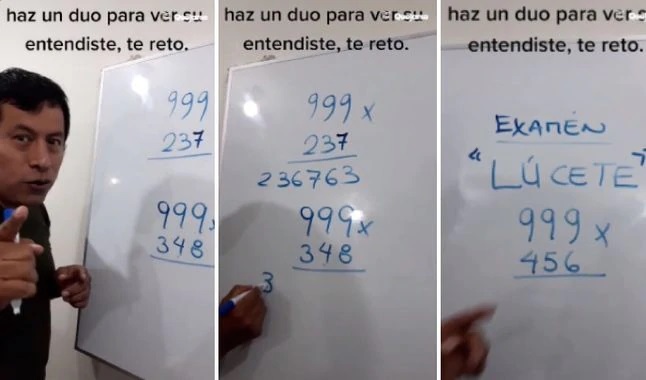 haz un duo para ver su
entendiste, te reto.
999
237
999
348
haz un duo para ver su
entendiste, te reto.
999 x
237
236763
999x
348
3
haz un duo para ver
entendiste, te reto.
EXAMEN
"LÚCETE"
999 x
456